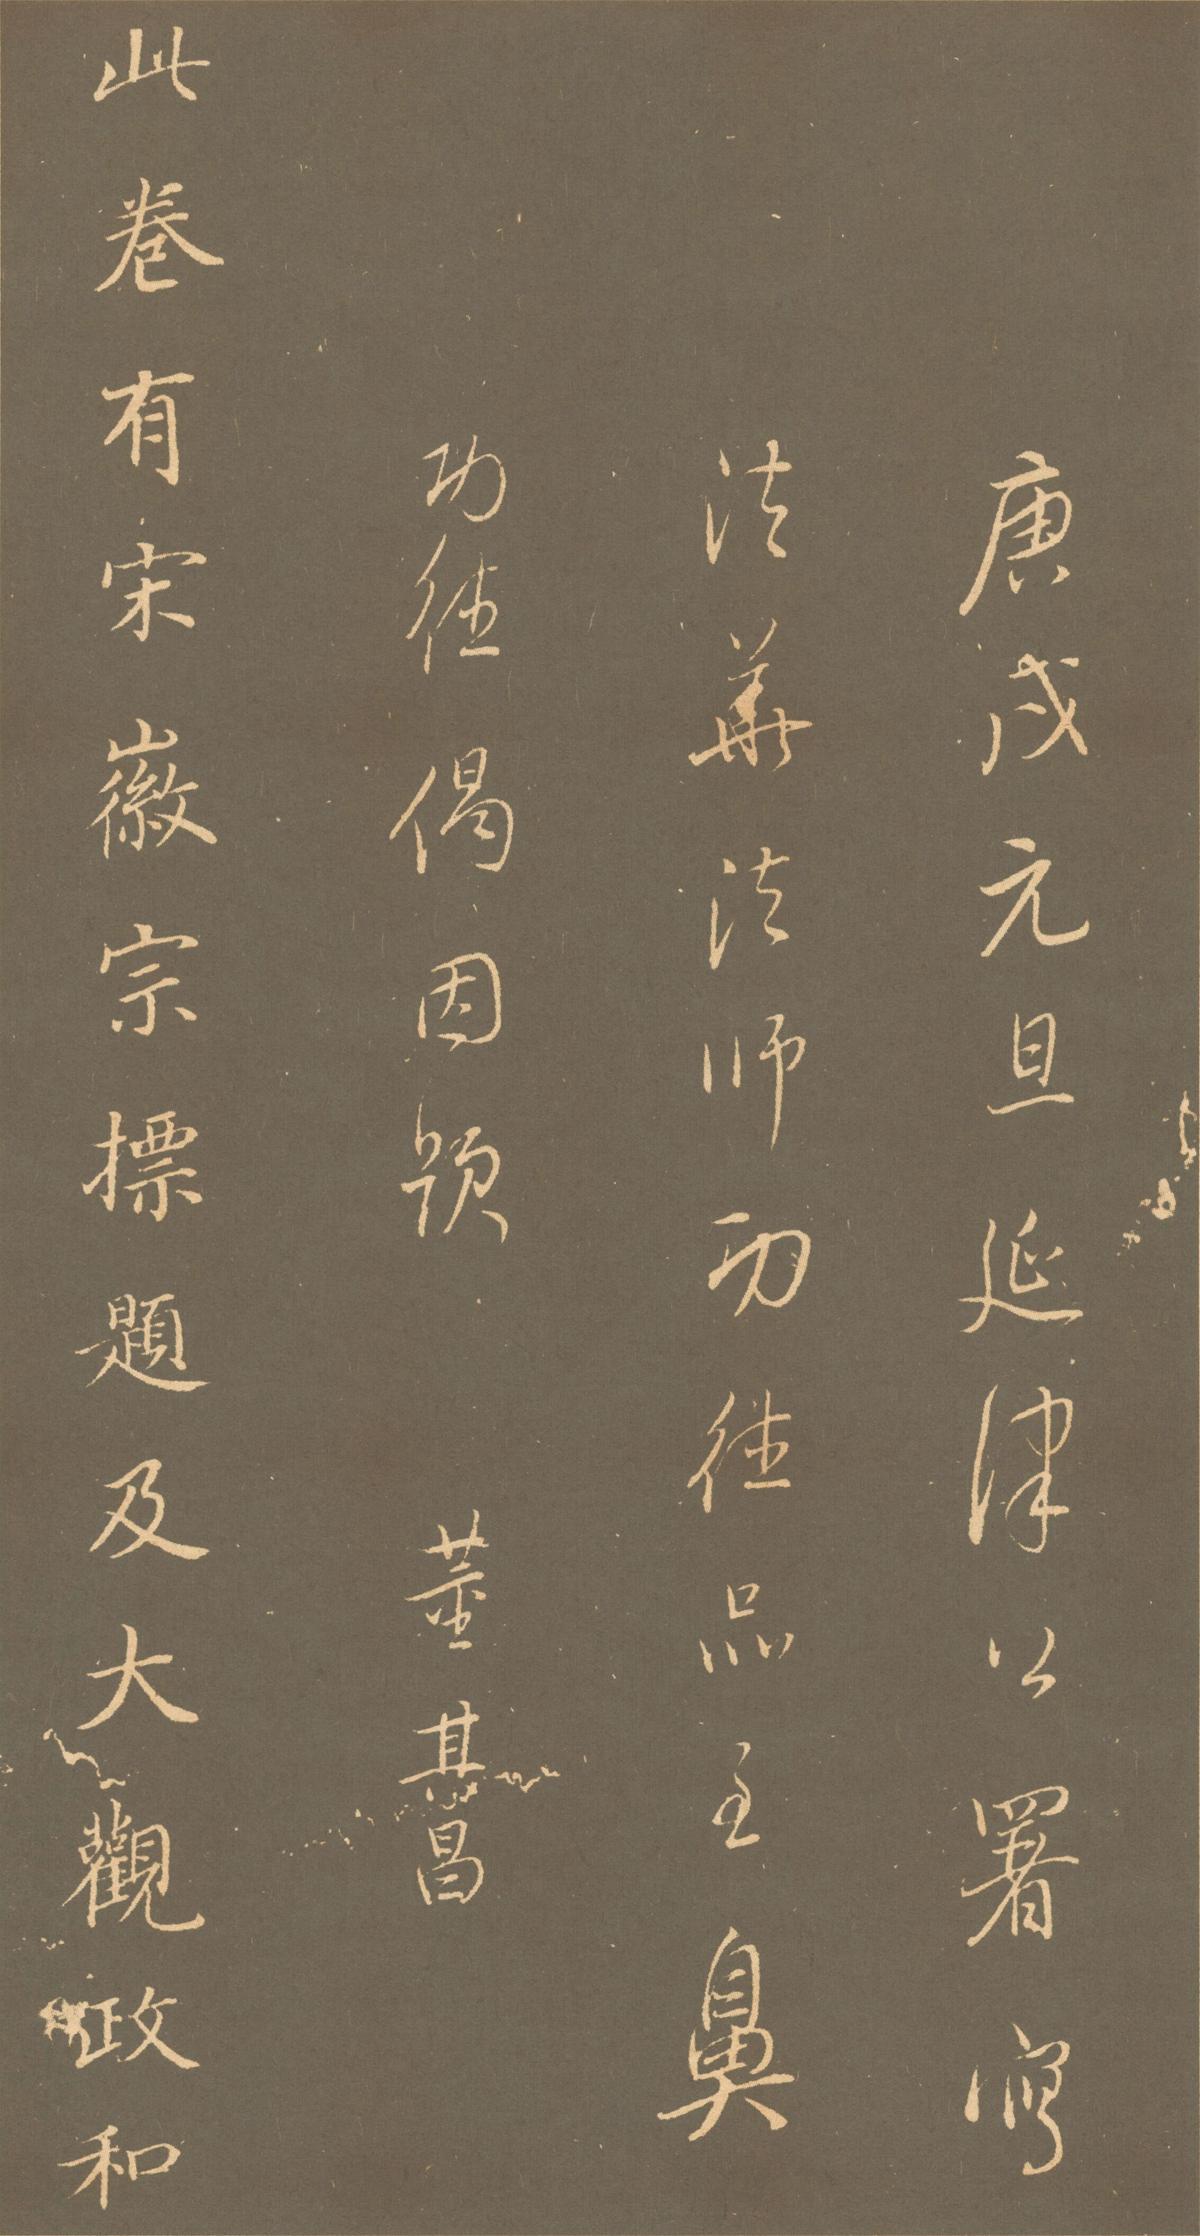 庚戌元旦延津公署寫
法華法師功德品至鼻
功德偈因題
董其昌
此卷有宋徽宗標題及大觀政和